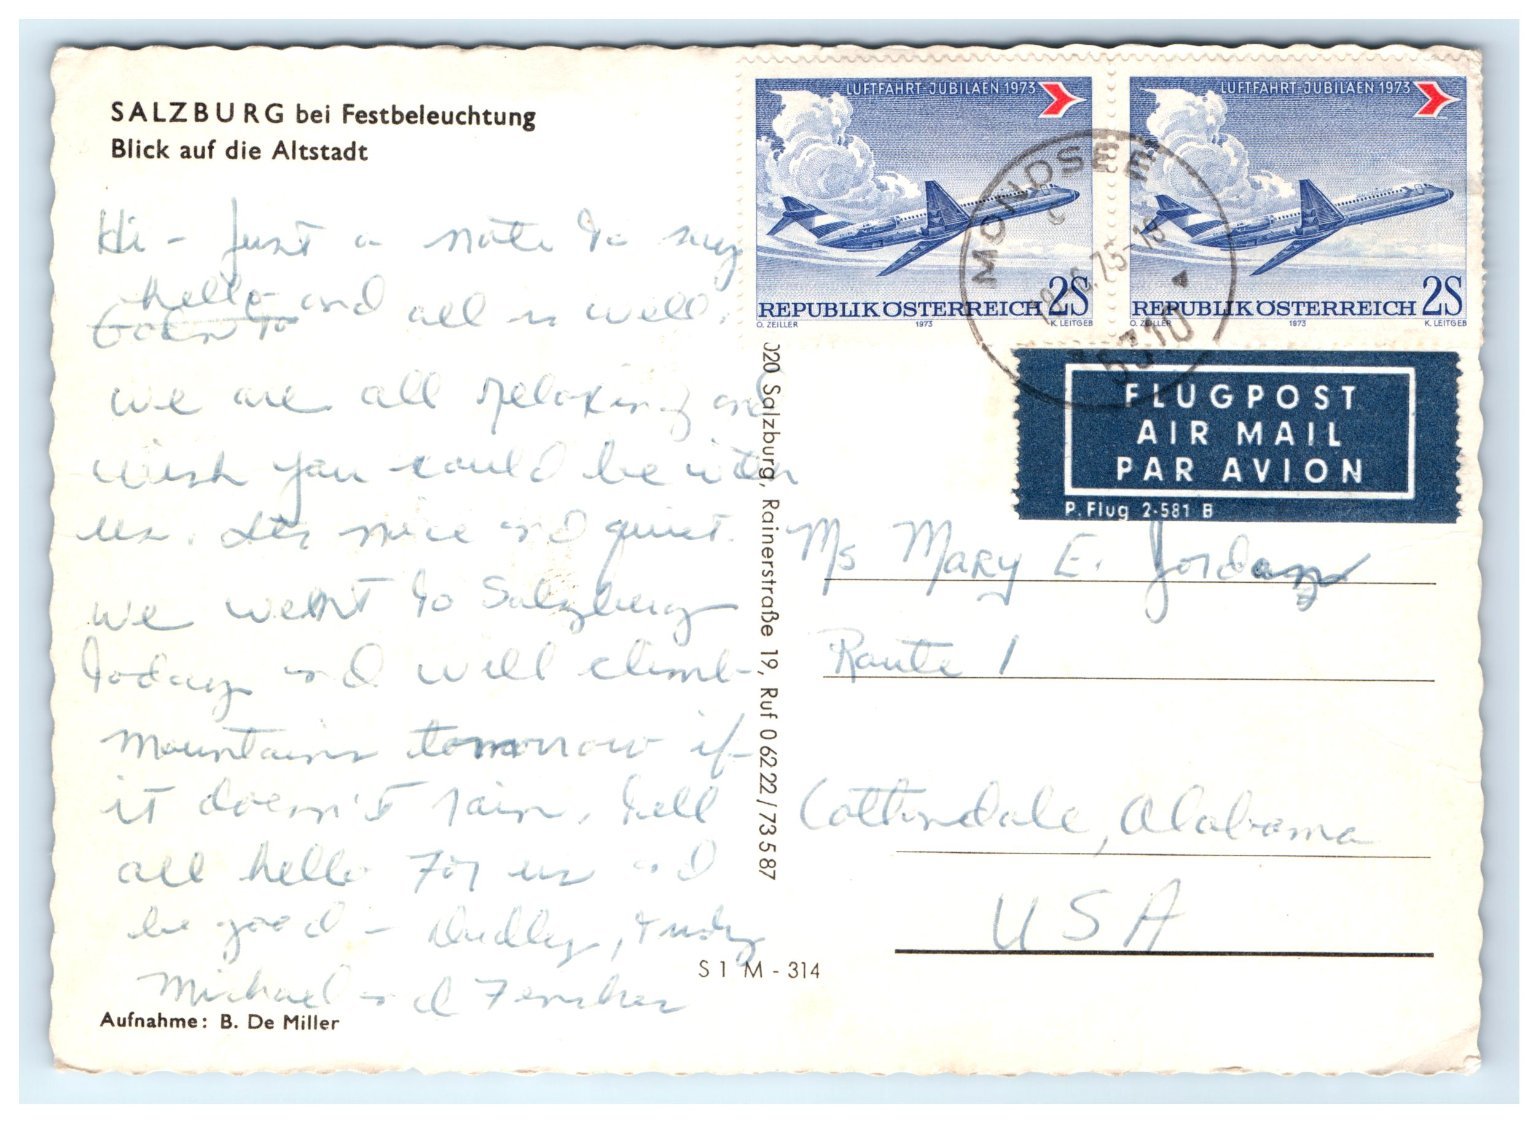 SALZBURG bei Festbeleuchtung
Blick auf die Altstadt
Hi - Just a note to say
hello and all is well.
we are all relaxing and
wish you could be with
us. Its nice and quiet.
we went to Salzburg
today and will climb
mountains tomorrow if
it doesn't rain. Tell
all hello for us and
be good - Dudley,
Michael and
Aufnahme: B. De Miller
S 1 M - 314
020 Salzburg, Rainerstraße 19, Ruf 0 62 22 / 73 5 87
LUFTFAHRT-JUBILÄEN 1973
REPUBLIK ÖSTERREICH 2S
O. ZEILLER 1973 K. LEITGEB
LUFTFAHRT-JUBILÄEN 1973
REPUBLIK ÖSTERREICH 2S
O. ZEILLER 1973 K. LEITGEB
MONDSEE
5310
FLUGPOST
AIR MAIL
PAR AVION
P. Flug 2-581 B
Ms Mary E. Jordan
Route 1
Cottondale, Alabama
USA